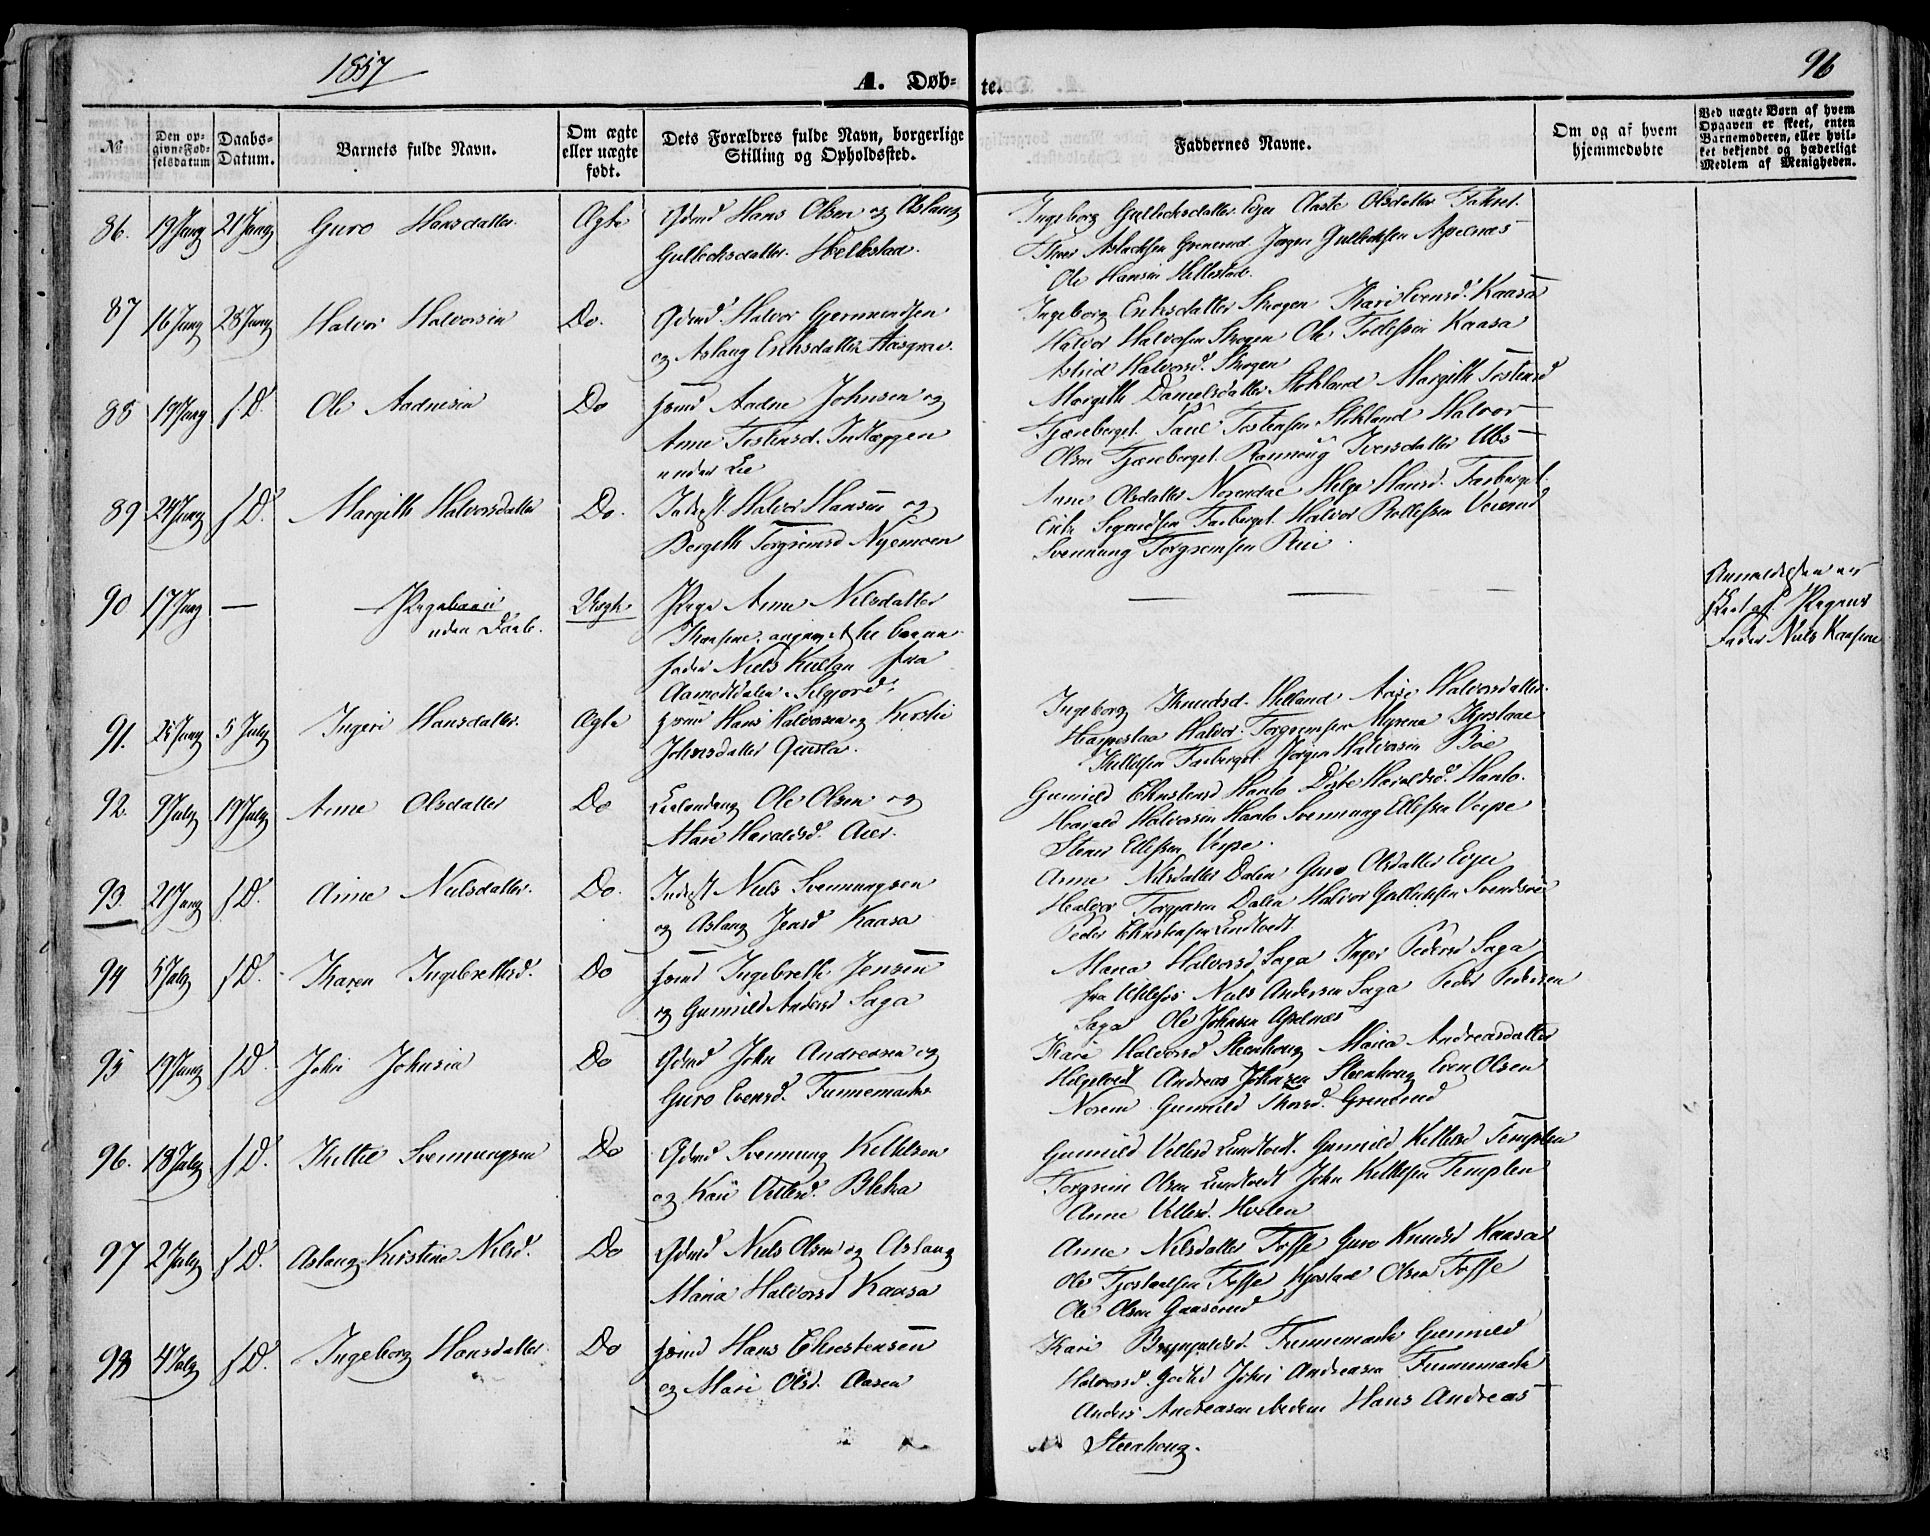 1857
A. Døb-
tel
96
№
Den op-
givne Fød-
selsdatum
Daabs-
Datum.
Barnets fulde Navn.
Om ægte
eller uægte
født.
Dets Forældres fulde Navn, borgerlige
Stilling og Opholdssted.
Faddernes Navne.
Om og af hvem
hjemmedøbte
Ved uægte Børn af hvem
Opgaven er skeet, enten
Barnemoderen, eller hvil-
ket bekjendt og hæderligt
Medlem af Menigheden.
86. 19 Juny 21 Juny Guro Hansdatter. Ægte Gdmd Hans Olsen og Aslaug
Gullecksdatter. Hellestad.
Ingeborg Gullecksdatter Evju Aaste Olsdatter
Thor Aslacksen Grenerud. Jørgen Gullecksen Apelnæs
Ole Hansen Hellestad.
87 16 Juny 28 Juny Halvor Halvorsen Do. Gdmd. Halvor Germundsen
og Aslaug Eriksdatter Hasgrav.
Ingeborg Eriksdatter Skogen Kari Evensd. Kaasa
Halvor Halvorsen Skogen Ole Kaasa
Astrid Halvorsd. Skogen
85 19 Juny s D. Ole Aadnesen Do Aadne Johnsen og
Anne Tostensd.
under Lie
Margith Danielsdatter Stokland Margith Tostensd
Tjæreberget. Paul Tostensen Stokland Halvor
Olsen Tjæreberget. Rannoug Iversdatter Ubs
89 24 Juny s D. Margith Halvorsdatter Do. Inderst. Halvor Hansen og
Bergith Torgrimsd Nyemoen
Anne Olsdatter Norendal Helge Hansd. Farberget.
Erik Farberget. Halvor Rollefsen Verrud
Svennung Torgrimsen Rui.
90 17 Juny — Pigebarn
uden Daab. Uægte Pige Anne Nilsdatter
Kaasene, angivet til barne
fader Niels Kultan fra
Aamotsdalen i Seljord.
— — —
Anmeldelsen er
skeet af Pigens
Fader Niels Kaasene
91. 25 Juny 5 July Ingeri Hansdatter. Ægte Hans Halvorsen og Kirstie
Johnsdatter
Ingeborg Knudsd. Helland Aase Halvorsdatter
Halvor Torgrimsen Myrene Kjostaae
Farberget. Jørgen Halvorsen Bøe
92. 9 July 19 July Anne Olsdatter Do Leilending Ole Olsen og
Mari Haraldsd.
Gunnild Christensd Hanto Dorte Haraldsd. Hanto.
Harald Halvorsen Hanto Svennung Ellefsen Verpe
Stener Ellefsen Verpe.
93. 21 Juny s D. Anne Nielsdatter. Do. Inderst Niels Svennungsen
og Aslaug Jensd Kaasa
Anne Nilsdatter Dalen Guro Olsdatter Evju
Halvor Dalen Halvor Gullecksen
Peder Christensen Lundtvedt.
94 5 July s D. Karen Ingebrettsd. Do Ingebreth Jensen
og Gunnild Andersd Saga
Maria Halvorsd Saga Inger Pedersd Saga
fra Ulefos Niels Andersen Saga Peder Pedersen
Saga Ole Johnsen Apelnæs
95 19 Juny s D. John Johnsen Do Gdmd John Andreasen og
Guro Evensd. Funnemark
Kari Halvorsd Steenhoug Maria Andreasdatter
Helgetvedt Andreas Johnsen Steenhoug Even Olsen
Norem Gunnild Thorsd. Grenerud
96. 18 July s D. Kittil Svennungsen Do Gdmd Svennung Kittilsen
og Kari Vetlesd. Bleka
Gunnild Vetlesd Lundtvedt. Gunnild Kittilsd Templen
Torgrim Olsen Lundtvedt John Kittilsen Templen
Anne Vetlesd.
97 2 July s D. Aslaug Kirstine Nilsd. Do Gdmd Niels Olsen og Aslaug
Maria Halvorsd Kaasa
Anne Nilsdatter Fosse Guro Knudsd Kaasa
Ole Tjostaalsen Fosse Kjostaal Olsen Fosse
Ole Olsen Gaaserud
98 4 July s D. Ingeborg Hansdatter Do Hans Christensen
og Mari Olsd. Aasen
Kari Brynjulfsd. Funnemark Gunnild
Halvorsd. John Andreasen Funnemark
Anders Andreasen Hans Andreas
Steenhoug.